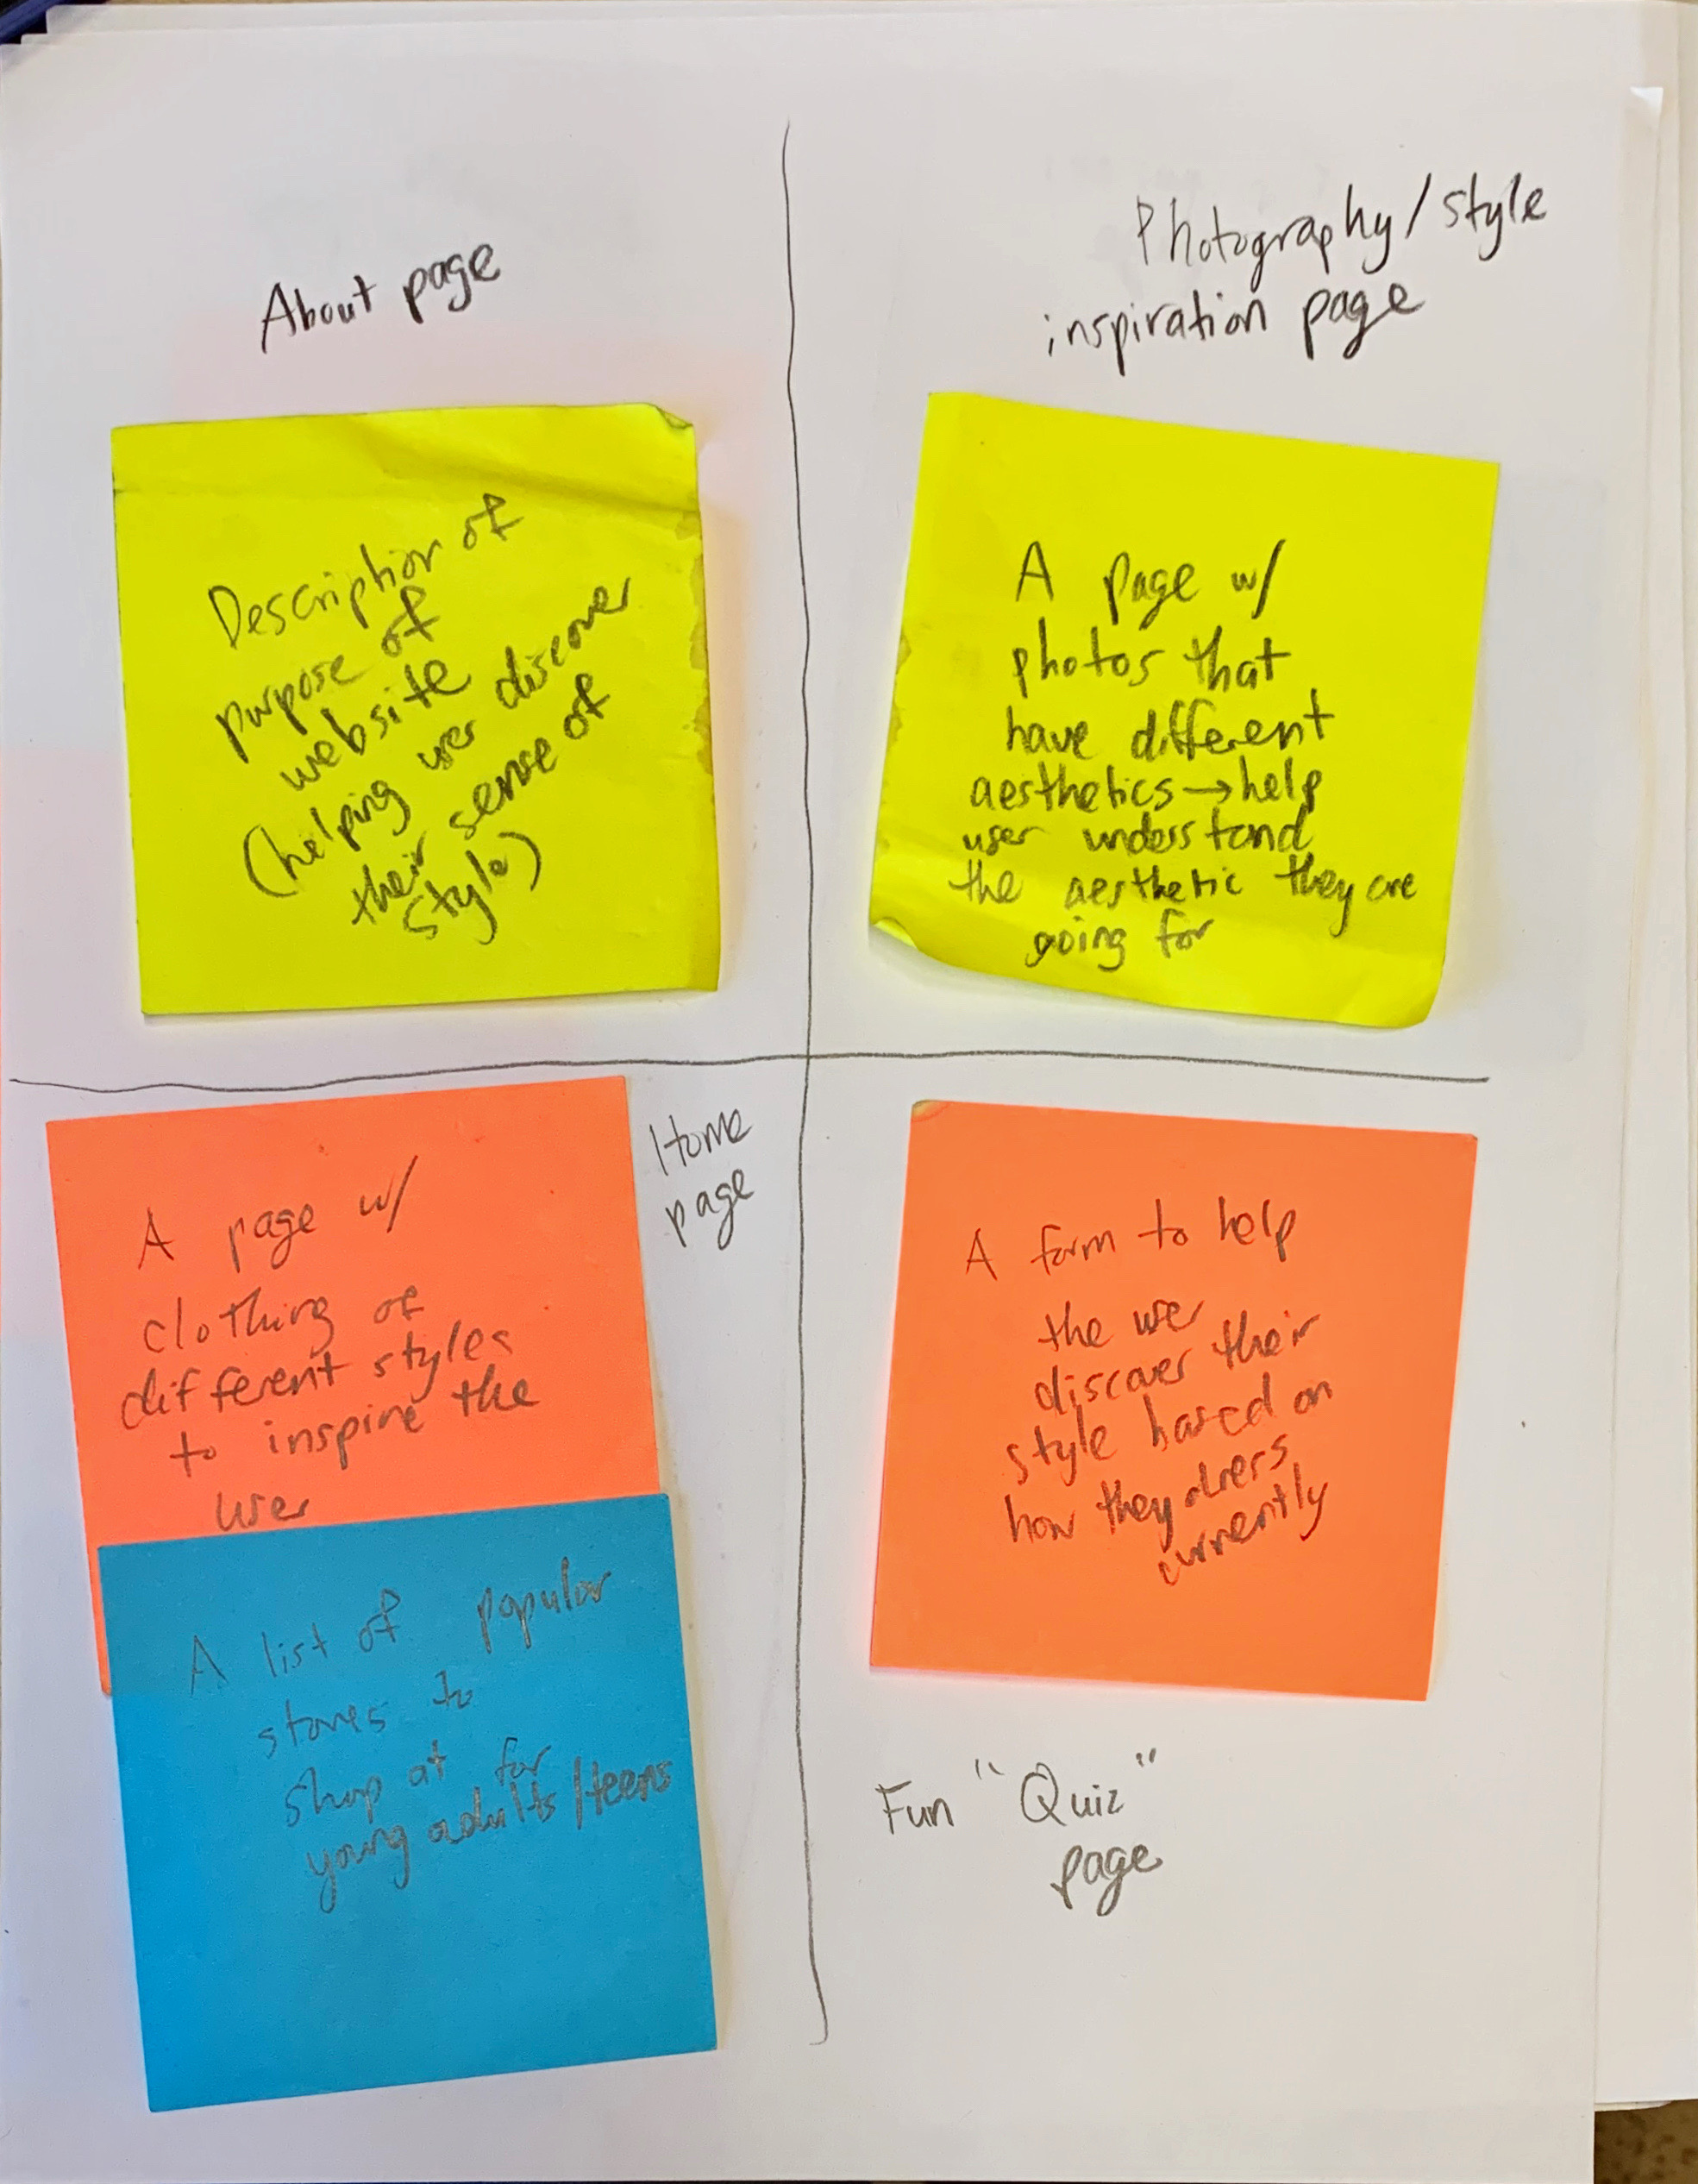 About page
Description of
purpose of
website
(helping user discover
their sense of
style)
Photography/style
inspiration page
A page w/
photos that
have different
aesthetics→help
user understand
the aesthetic they are
going for
Home
page
A page w/
clothing of
different styles
to inspire the
user
A list of popular
stores to
shop at for
young adults/teens
A form to help
the user
discover their
style based on
how they dress
currently
Fun "Quiz"
page